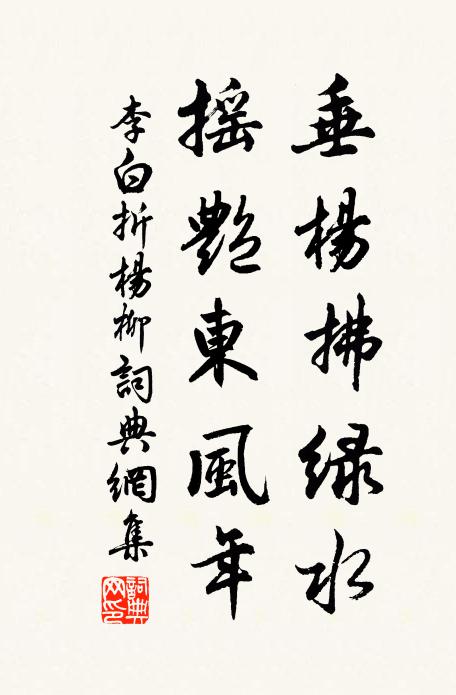 垂楊拂緑水
搖艷東風年
李白折楊柳詞典網集
詞典網印